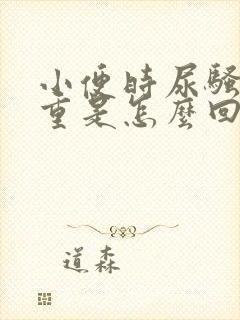 小便時尿騷
重是怎麼回
道森